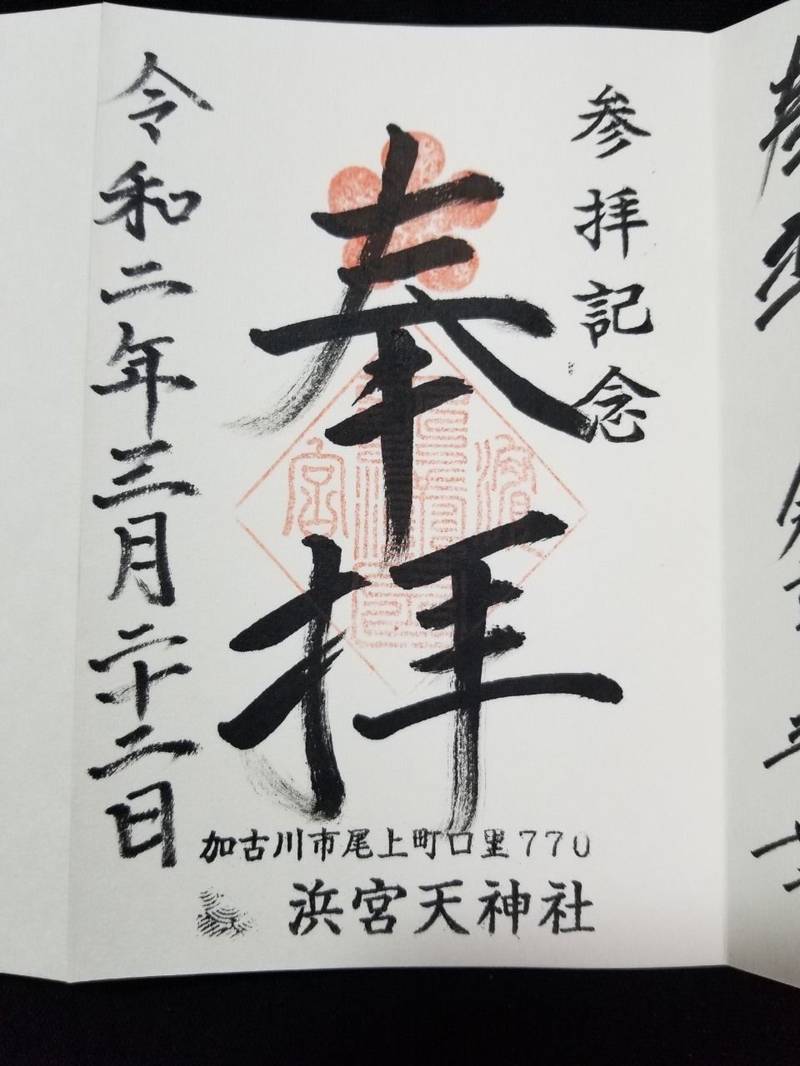 参拝記念
奉拝
令和二年三月二十二日
加古川市尾上町口里770
浜宮天神社